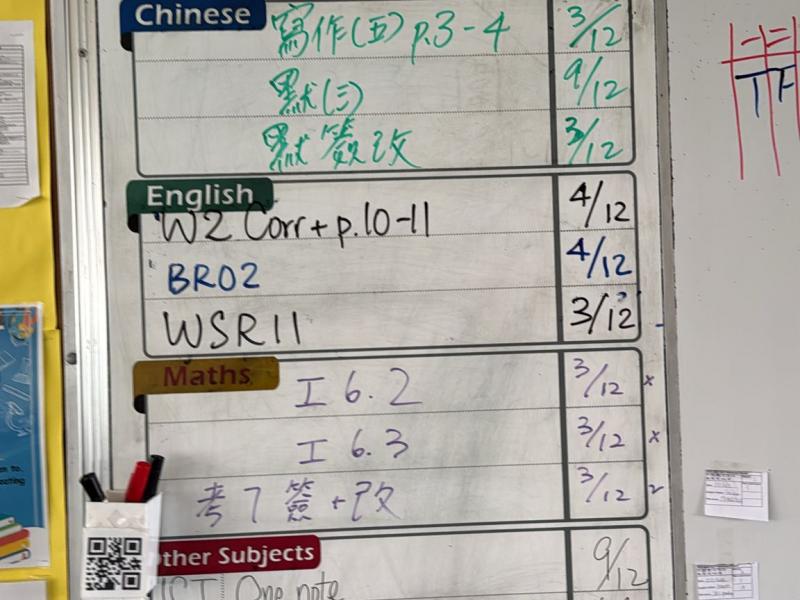 Chinese
寫作(五) p.3-4 3/12
默(三) 9/12
默 簽改 3/12
English
W2 Corr + p.10-11 4/12
BR02 4/12
WSR11 3/12
Maths
工 6.2 3/12 x
工 6.3 3/12 x
考7簽+改 3/12
Other Subjects
ICT One note 9/12